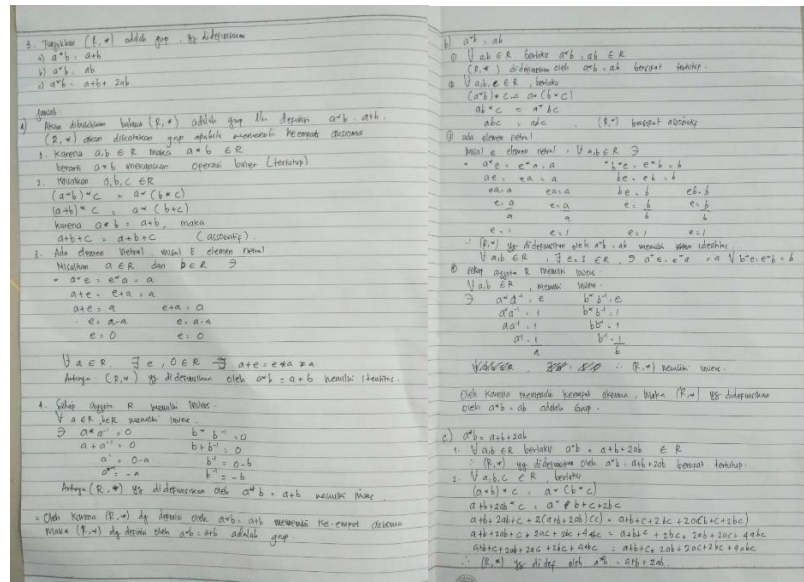 3. Tunjukkan (R, *) adalah grup, yg didefinisikan
a) a*b = a+b
b) a*b = ab
c) a*b = a+b+ 2ab
Jawab
a) Akan dibuktikan bahwa (R, *) adalah grup dgn definisi a*b = a+b.
(R, *) akan dikatakan grup apabila memenuhi keempat aksioma
1. Karena a,b ∈ R maka a*b ∈ R
berarti a*b merupakan operasi biner (tertutup)
2. Misalkan a,b,c ∈ R
(a*b)*c = a*(b*c)
(a+b)*c = a*(b+c)
karena a*b = a+b, maka
a+b+c = a+b+c (assosiatif).
3. Ada elemen netral, misal E elemen netral
Misalkan a ∈ R dan b ∈ R ∋
• a*e = e*a = a
a+e = e+a = a
a+e = a e+a = a
e = a-a e = a-a
e = 0 e = 0
∀ a ∈ R, ∃ e, 0 ∈ R ∋ a+e = e+a = a
Artinya (R,*) yg didefinisikan oleh a*b = a+b memiliki identitas.
4. Setiap anggota R memiliki invers.
∀ a ∈ R, b ∈ R memiliki invers
∋ a*a⁻¹ = 0 b*b⁻¹ = 0
a+a⁻¹ = 0 b+b⁻¹ = 0
a⁻¹ = 0-a b⁻¹ = 0-b
a⁻¹ = -a b⁻¹ = -b
Artinya (R,*) yg didefinisikan oleh a*b = a+b memiliki invers.
= Oleh karena (R,*) dg definisi oleh a*b = a+b memenuhi ke-empat aksioma
Maka (R,*) dg definisi oleh a*b = a+b adalah grup.
b) a*b = ab
① ∀ a,b ∈ R berlaku a*b = ab ∈ R
(R,*) didefinisikan oleh a*b = ab bersifat tertutup.
② ∀ a,b,c ∈ R, berlaku
(a*b)*c = a*(b*c)
ab*c = a*bc
abc = abc (R,*) bersifat asosiatif
③ ada elemen netral
Misal e elemen netral, ∀ a,b ∈ R ∋
• a*e = e*a = a • b*e = e*b = b
ae = ea = a be = eb = b
ea = a ea = a be = b eb = b
e = a/a e = a/a e = b/b e = b/b
e = 1 e = 1 e = 1 e = 1
∴ (R,*) yg didefinisikan oleh a*b = ab memiliki identitas.
∀ a,b ∈ R, ∃ e = 1 ∈ R, ∋ a*e = e*a = a ∀ b*e = e*b = b
④ setiap anggota R memiliki invers
∀ a,b ∈ R, memiliki invers
∋ a*a⁻¹ = e b*b⁻¹ = e
a*a⁻¹ = 1 b*b⁻¹ = 1
aa⁻¹ = 1 bb⁻¹ = 1
a⁻¹ = 1/a b⁻¹ = 1/b
∴ (R,*) memiliki invers.
Oleh karena memenuhi keempat aksioma, Maka (R,*) yg didefinisikan
oleh a*b = ab adalah Grup.
c) a*b = a+b+2ab
1. ∀ a,b ∈ R berlaku a*b = a+b+2ab ∈ R
∴ (R,*) yg didefinisikan oleh a*b = a+b+2ab bersifat tertutup.
2. ∀ a,b,c ∈ R berlaku
(a*b)*c = a*(b*c)
a+b+2ab*c = a*b+c+2bc
a+b+2ab+c+2(a+b+2ab)(c) = a+b+c+2bc+2a(b+c+2bc)
a+b+2ab+c+2ac+2bc+4abc = a+b+c+2bc+2ab+2ac+4abc
a+b+c+2ab+2ac+2bc+4abc = a+b+c+2ab+2ac+2bc+4abc
∴ (R,*) yg didef oleh a*b = a+b+2ab